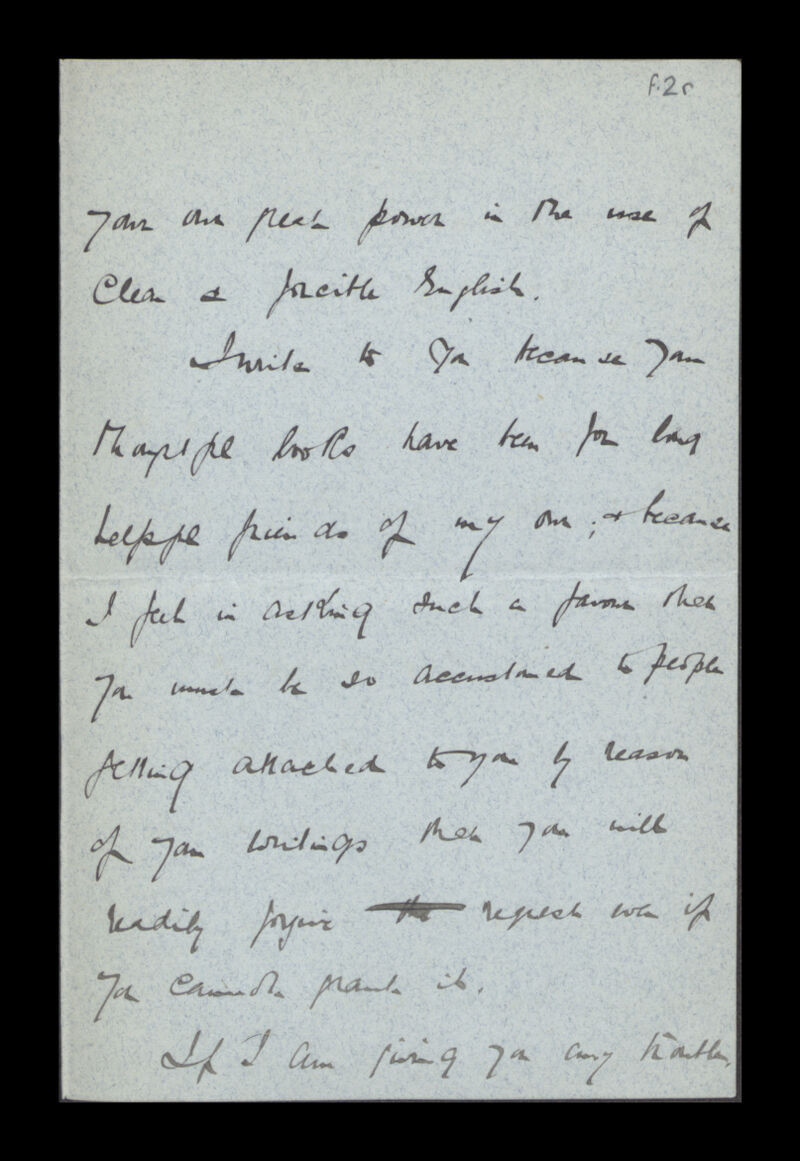 f.2r
your own great power in the use of
Clear & forcible English.
I write to you because your
thoughtful books have been for long
helpful friends of my own; & because
I feel in asking such a favour that
you must be so accustomed to people
getting attached to you by reason
of your writings that you will
readily forgive the request even if
you cannot grant it.
If I am giving you any trouble,